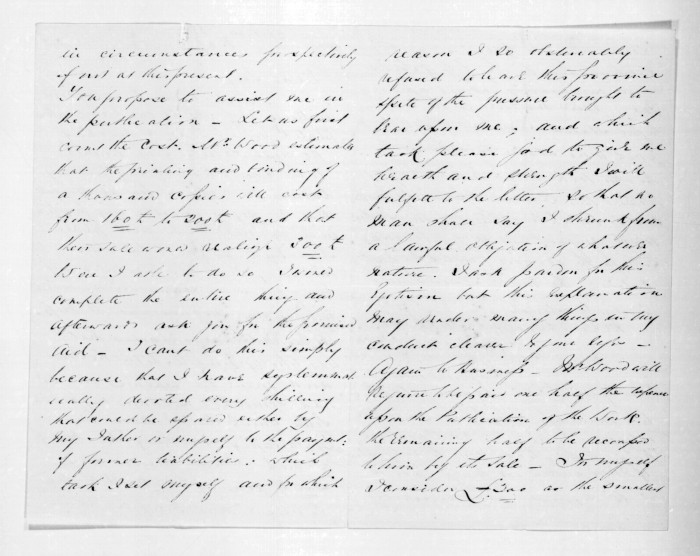 in circumstances prospectively
if not at this present.
You propose to assist me in
the publication – Let us first
count the Cost. Mr. Wood estimates
that the printing and binding of
a thousand copies will cost
from 160£ to 200£ and that
their sale would realize 300£
Were I able to do so I would
complete the entire thing and
afterwards ask you for the promised
aid – I cant do this simply
because that I have systemat
ically devoted every shilling
that could be spared either by
my Father or myself to the paymt:
of former liabilities: which
task I set myself and for which
reason I so obstinately
refused to leave this province
spite of the pressure brought to
bear upon me; and which
task please God to give me
health and strength I will
fulfill to the letter. So that no
man shall say I shrunk from
a lawful obligation of whatever
nature. I ask pardon for this
Egotism but this explanation
may render many things in my
conduct clearer to your eyes –
Again to business – Mr Wood will
require to be paid one half the expense
upon the Publication of the Work.
the remaining half to be
to him by the sale – For myself
I consider £300 as the smallest